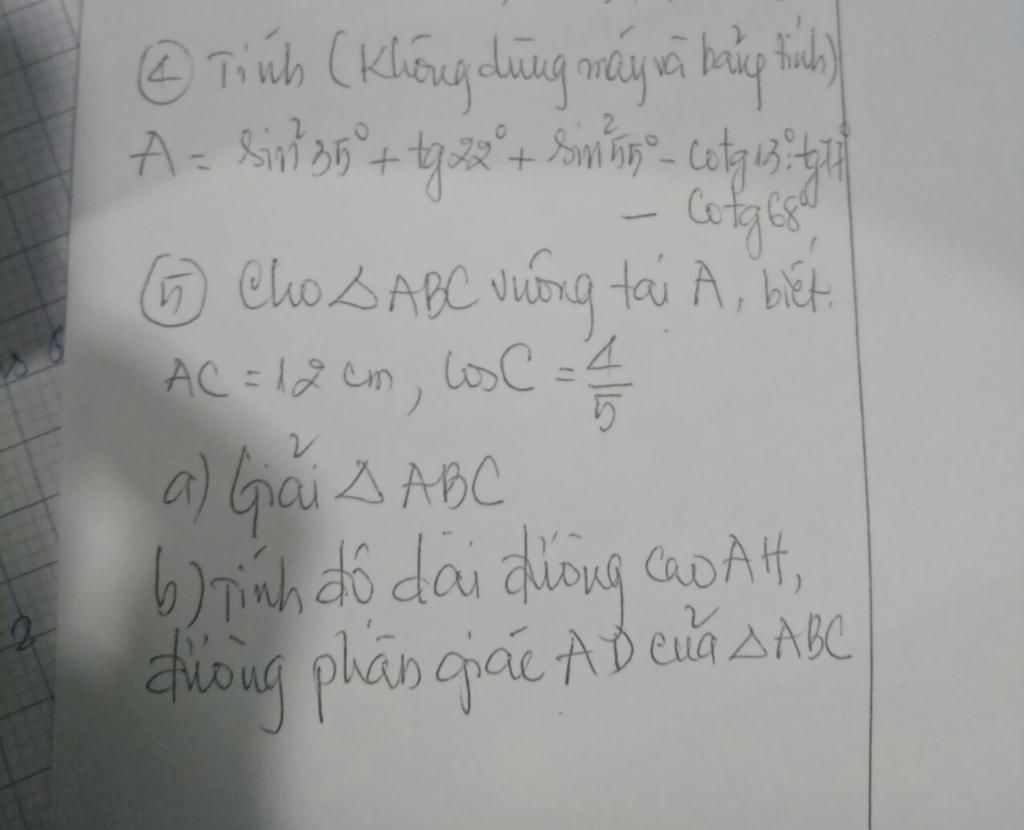 ④ Tính (Không dùng máy và bảng tính)
A = sin²35° + tg22° + sin²55° - Cotg13°:tg77°
- Cotg68°
⑤ Cho △ABC vuông tại A, biết.
AC = 12 cm, cosC = 4/5
a) Giải △ABC
b) Tính độ dài đường cao AH,
đường phân giác AD của △ABC
2